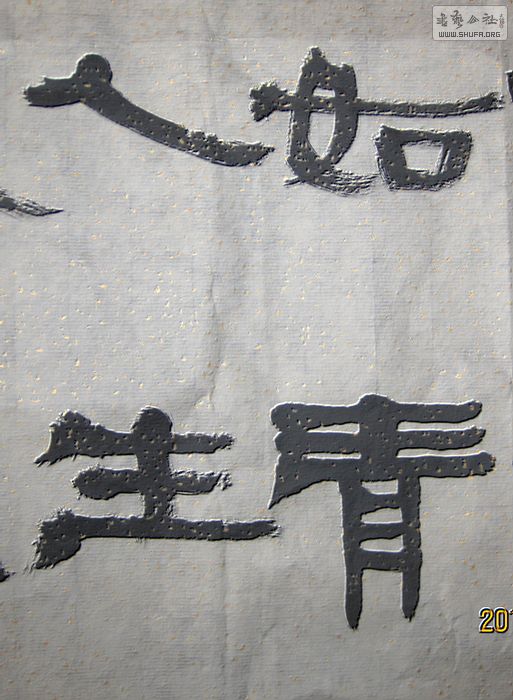 書藝公社
WWW.SHUFA.ORG
如青
人生
201